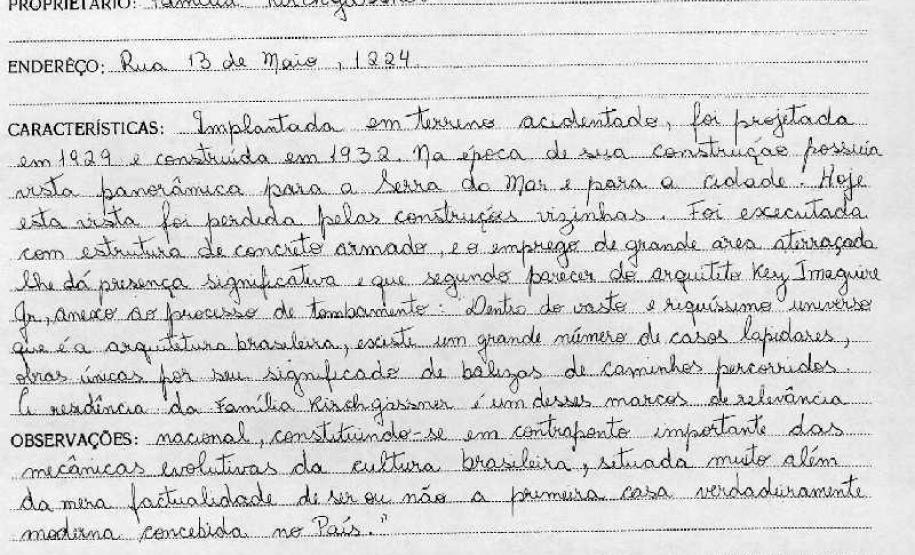 PROPRIETÁRIO: Família Kirchgässner
ENDERÊÇO: Rua 13 de Maio, 1224
CARACTERÍSTICAS: Implantada em terreno acidentado, foi projetada
em 1929 e construída em 1932. Na época de sua construção possuia
vista panorâmica para a Serra do Mar e para a cidade. Hoje
esta vista foi perdida pelas construções vizinhas. Foi executada
com estrutura de concreto armado, e o emprego de grande area aterraçada
lhe dá presença significativa e que segundo parecer do arquiteto Key Imaguire
Jr, anexo ao processo de tombamento: Dentro do vasto e riquíssimo universo
que é a arquitetura brasileira, existe um grande número de casos lapidares,
obras únicas por seu significado de balizas de caminhos percorridos.
A residência da Família Kirchgassner é um desses marcos de relevância
OBSERVAÇÕES: nacional, constituindo-se em contraponto importante das
mecânicas evolutivas da cultura brasileira, situada muito além
da mera factualidade de ser ou não a primeira casa verdadeiramente
moderna concebida no País."